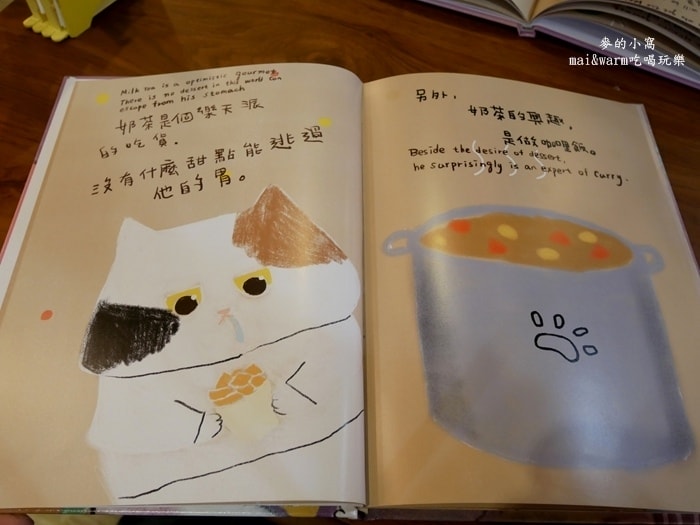 麥的小窩
mai&warm吃喝玩樂
Milk tea is a optimistic gourmet
There is no dessert in this world can
escape from his stomach
奶茶是個樂天派
的吃貨，
沒有什麼甜點能逃過
他的胃。
另外，
奶茶的興趣，
是做咖哩飯。
Beside the desire of dessert,
he surprisingly is an expert of curry.